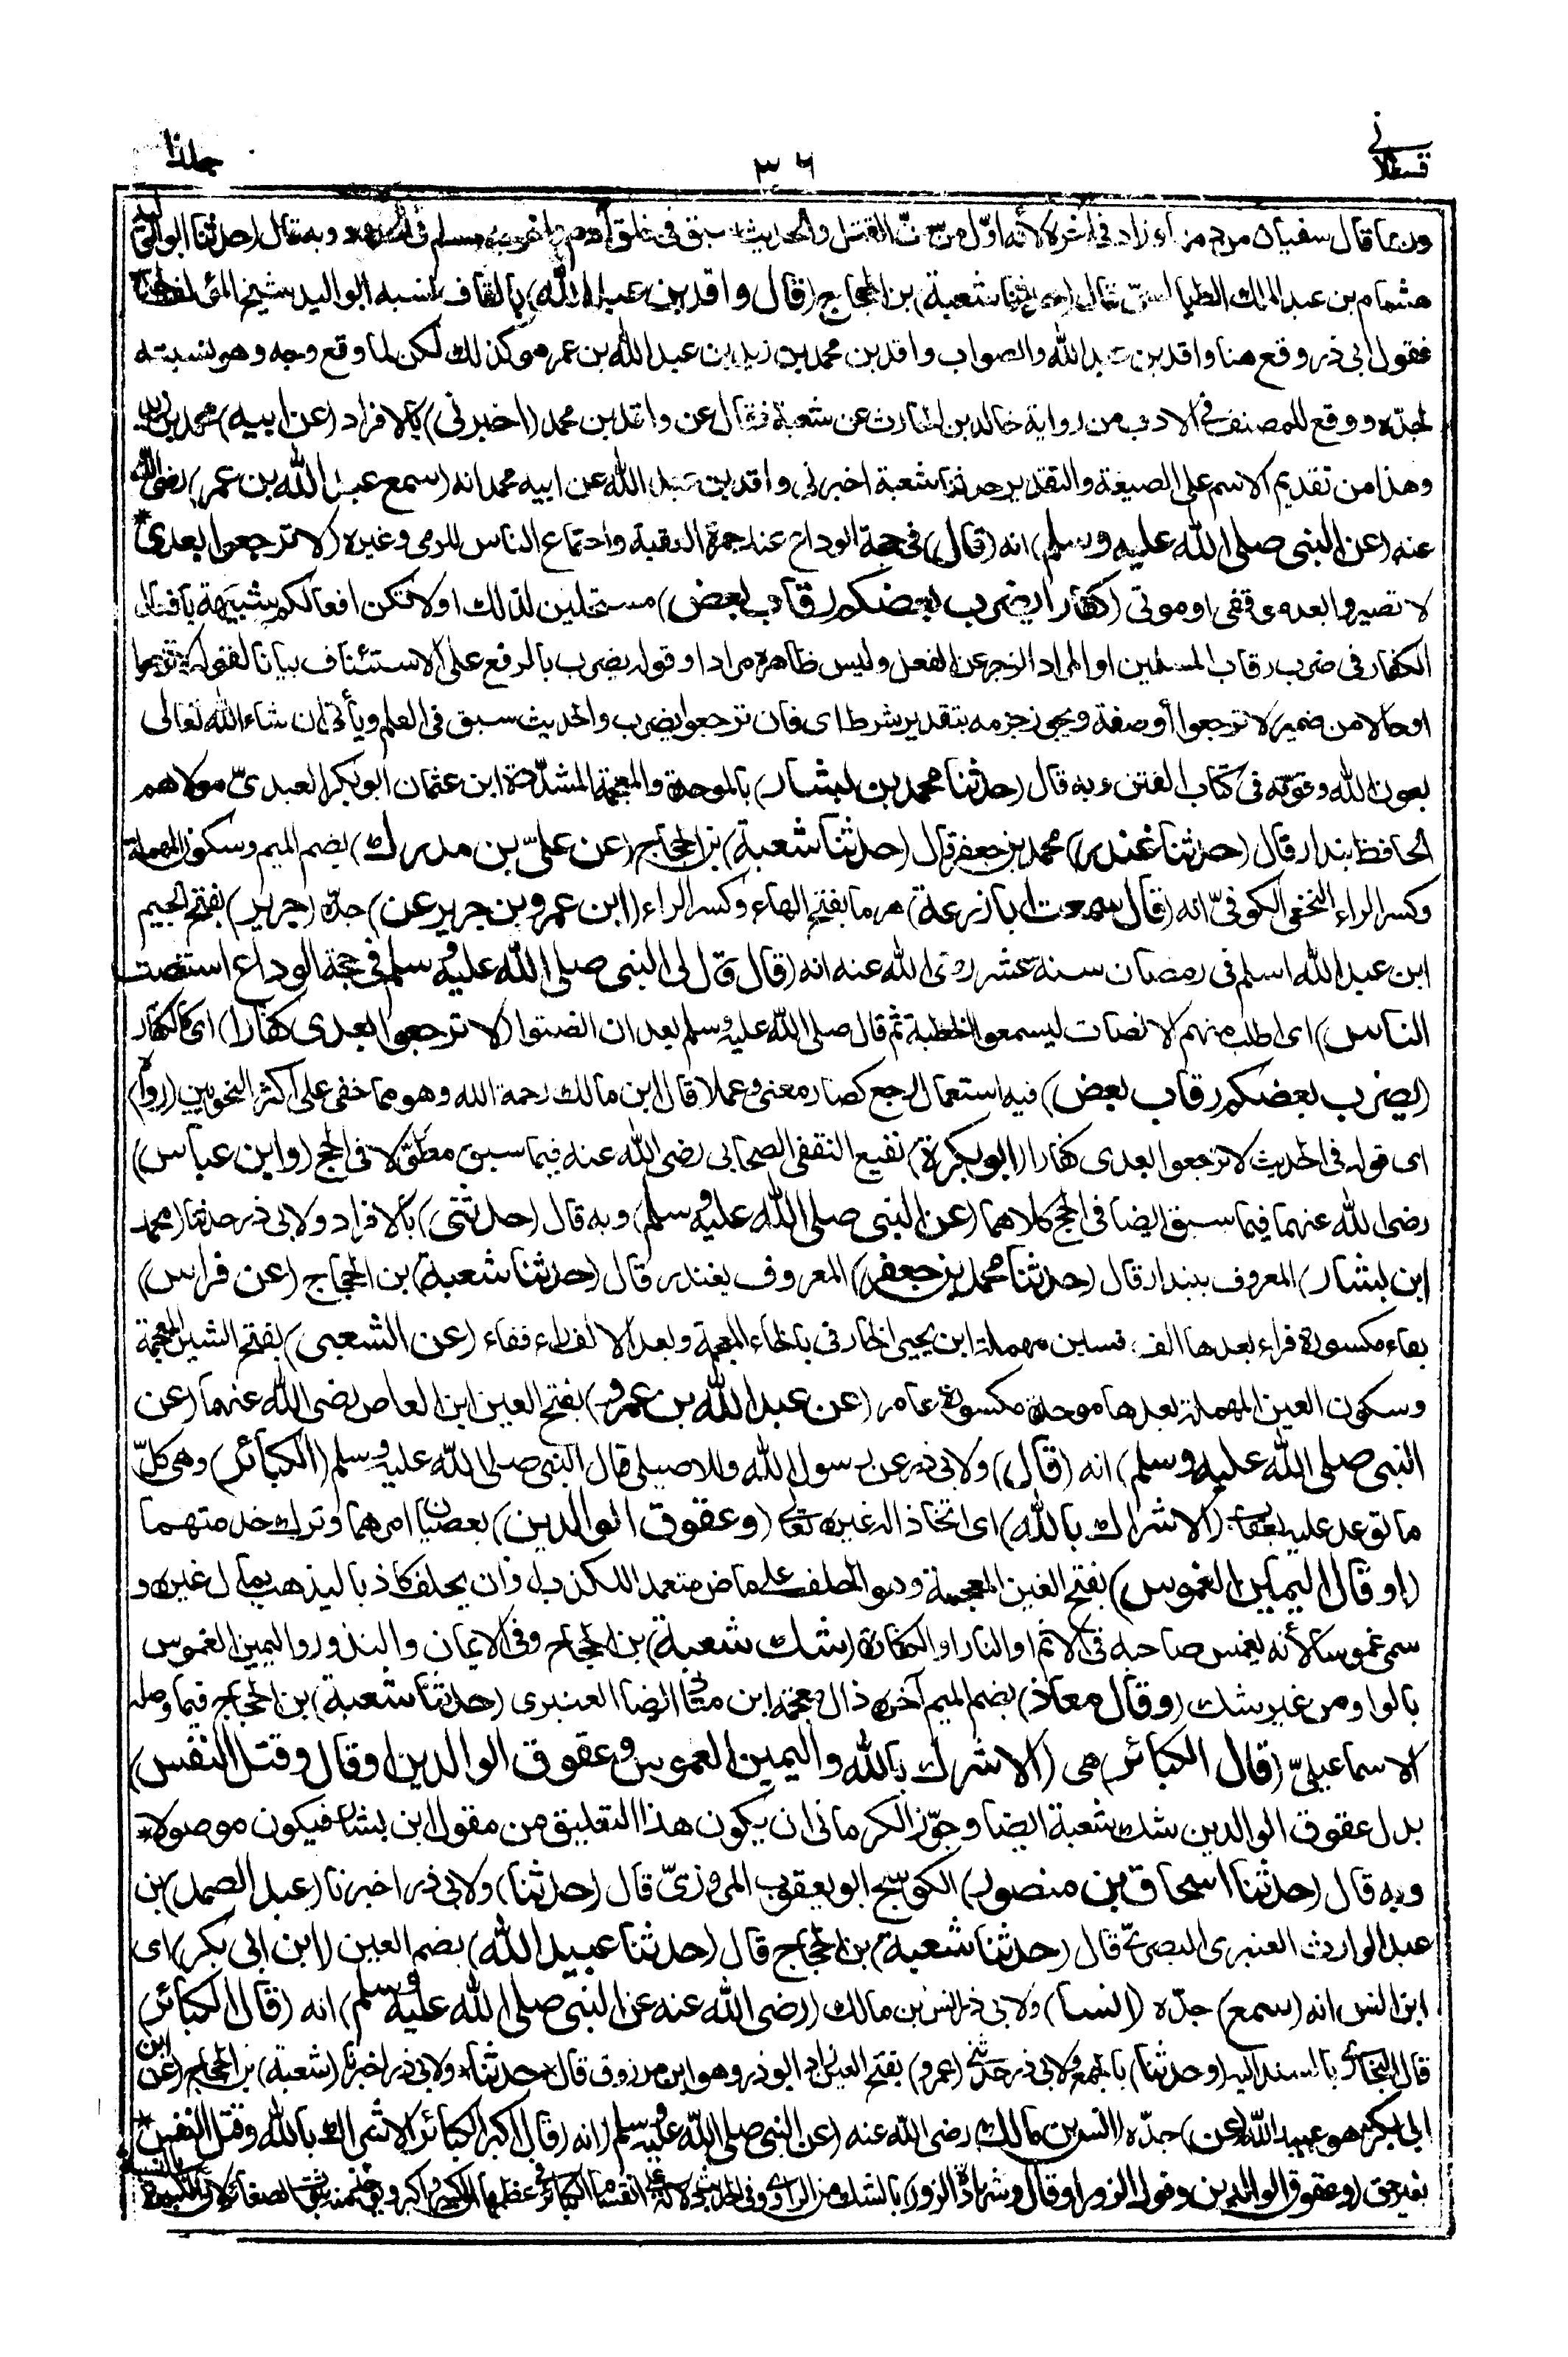 قسطلانى
٣٦
جلد١٠
وربما قال سفيان من دمها وزاد فى آخره لأنه أوّل من سنّ القتل والحديث سبق فى خلق آدم وأخرجه مسلم فى الحدود وبه قال (حدثنا ابو الوليد)
هشام بن عبد الملك الطيالسىّ قال (حدثنا شعبة) بن الحجاج (قال واقد بن عبد الله) بالقاف نسبه ابو الوليد شيخ المؤلف
فقول ابى ذر وقع هنا واقد بن عبد الله والصواب واقد بن محمد بن زيد بن عبد الله بن عمر هو كذلك لكن لما وقع وجه وهو نسبته
لجدّه ووقع للمصنف فى الادب من رواية خالد بن الحارث عن شعبة فقال عن واقد بن محمد (اخبرنى) بالافراد (عن ابيه) محمد بن زيد
وهذا من تقديم الاسم على الصيغة والتقدير حدثنا شعبة اخبرنى واقد بن عبد الله عن ابيه محمد انه (سمع عبد الله بن عمر) رضى الله
عنه (عن النبى صلى الله عليه وسلم) انه (قال) فى حجة الوداع عند جمرة العقبة واجتماع الناس للرمى وغيره (لا ترجعوا بعدى)
لا تصيروا بعد موقفى او موتى (كفارا يضرب بعضكم رقاب بعض) مستحلين لذلك او لا تكن افعالكم شبيهة بافعال
الكفار فى ضرب رقاب المسلمين او المراد الزجر عن الفعل وليس ظاهره مرادا وقوله يضرب بالرفع على الاستئناف بيانا لقوله لا ترجعوا
او حالا من ضمير لا ترجعوا أو صفة ويجوز جزمه بتقدير شرط اى فان ترجعوا يضرب والحديث سبق فى العلم ويأتى ان شاء الله تعالى
بعون الله وقوّته فى كتاب الفتن وبه قال (حدثنا محمد بن بشار) بالموحدة والمعجمة المشدّدة ابن عثمان ابو بكر العبدىّ مولاهم
الحافظ بندار قال (حدثنا غندر) محمد بن جعفر قال (حدثنا شعبة) بن الحجاج (عن علىّ بن مدرك) بضم الميم وسكون المهملة
وكسر الراء النخعى الكوفىّ انه (قال سمعت ابا زرعة) هرما بفتح الهاء وكسر الراء (ابن عمرو بن جرير عن) جدّه (جرير) بفتح الجيم
ابن عبد الله اسلم فى رمضان سنة عشر رضى الله عنه انه (قال قال لى النبى صلى الله عليه وسلم فى حجة الوداع استنصت
الناس) اى اطلب منهم الانصات ليسمعوا الخطبة ثم قال صلى الله عليه وسلم بعد ان انصتوا (لا ترجعوا بعدى كفارا) اى كالكفار
(يضرب بعضكم رقاب بعض) فيه استعمال رجع كصار معنى وعملا قال ابن مالك رحمة الله وهو مما خفى على اكثر النحويين (رواه)
اى قوله فى الحديث لا ترجعوا بعدى كفارا (ابو بكرة) نفيع الثقفى الصحابى رضى الله عنه فيما سبق مطوّلا فى الحج (وابن عباس)
رضى الله عنهما فيما سبق ايضا فى الحج كلاهما (عن النبى صلى الله عليه وسلم) وبه قال (حدثنى) بالافراد ولابى ذر حدثنا (محمد
ابن بشار) المعروف ببندار قال (حدثنا محمد بن جعفر) المعروف بغندر قال (حدثنا شعبة) بن الحجاج (عن فراس)
بفاء مكسورة فراء بعدها الف فسين مهملة ابن يحيى الخارفى بالخاء المعجمة وبعد الالف راء ففاء (عن الشعبى) بفتح الشين المعجمة
وسكون العين المهملة بعدها موحدة مكسورة عامر (عن عبد الله بن عمرو) بفتح العين ابن العاص رضى الله عنهما (عن
النبى صلى الله عليه وسلم) انه (قال) ولابى ذر عن رسول الله وللاصيلى قال النبى صلى الله عليه وسلم (الكبائر) وهى كلّ
ما توعد عليه بعقاب (الاشراك بالله) اى اتخاذ اله غيره تعالى (وعقوق الوالدين) بعصيان امرهما وترك خدمتهما
(او قال اليمين الغموس) بفتح الغين المعجمة وهو الحلف على ماض متعمدا للكذب او ان يحلف كاذبا ليذهب بمال غيره و
سمى غموسا لأنه يغمس صاحبه فى الاثم او النار او الكفارة (شك شعبة) بن الحجاج وفى الايمان والنذور واليمين الغموس
بالواو من غير شك (وقال معاذ) بضم الميم آخره ذال معجمة ابن معاذ ايضا العنبرى (حدثنا شعبة) بن الحجاج فيما وصله
الاسماعيلىّ (قال الكبائر) هى (الاشرك بالله واليمين الغموس وعقوق الوالدين او قال وقتل النفس)
بدل عقوق الوالدين شك شعبة ايضا وجوّز الكرمانى ان يكون هذا التعليق من مقول ابن بشار فيكون موصولا*
وبه قال (حدثنا اسحاق بن منصور) الكوسج ابو يعقوب المروزىّ قال (حدثنا) ولابى ذر اخبرنا (عبد الصمد) بن
عبد الوارث العنبرى البصرىّ قال (حدثنا شعبة) بن الحجاج قال (حدثنا عبيد الله) بضم العين (ابن ابى بكر) اى
ابن انس انه (سمع) جدّه (انسا) ولابى ذر انس بن مالك (رضى الله عنه عن النبى صلى الله عليه وسلم) انه (قال الكبائر)
قال البخارى بالسند اليه (وحدثنا) بالجمع ولابى ذر حدثنى (عمرو) بفتح العين زاد ابو ذر وهو ابن مرزوق قال (حدثنا) ولابى ذر اخبرنا (شعبة) بن الحجاج (عن ابن
ابى بكر) هو عبيد الله (عن) جدّه (انس بن مالك) رضى الله عنه (عن النبى صلى الله عليه وسلم) انه (قال اكبر الكبائر الاشراك بالله وقتل النفس)*
بغير حق (وعقوق الوالدين وقول الزور او قال وشهادة الزور) بالشك من الراوى وفى الحديث دلالة على انقسام الكبائر فى عظمها الى كبير واكبر